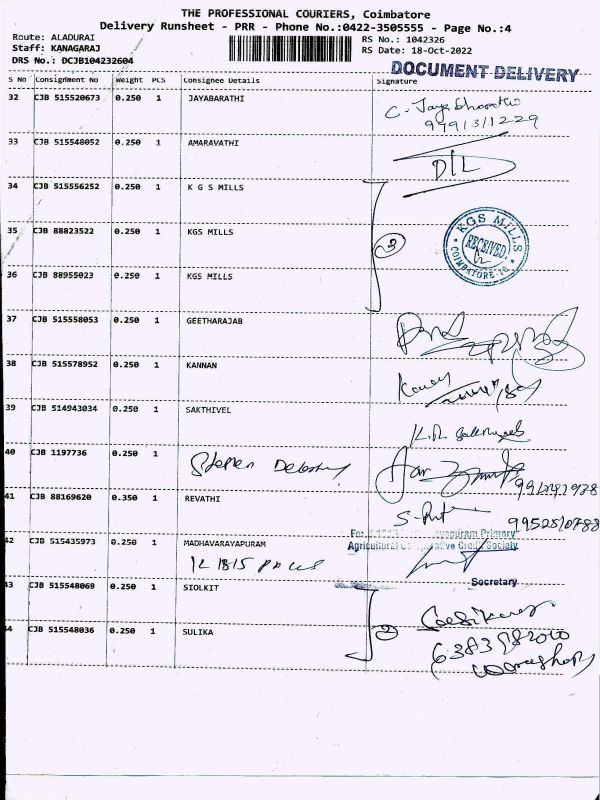 THE PROFESSIONAL COURIERS, Coimbatore
Delivery Runsheet - PRR - Phone No.:0422-3505555 - Page No.:4
Route: ALADURAI
RS No.: 1042326
Staff: KANAGARAJ
RS Date: 18-Oct-2022
DRS No.: DCJB104232604
DOCUMENT DELIVERY
S No Consignment No Weight PCS Consignee Details Signature
32 CJB 515520673 0.250 1 JAYABARATHI
33 CJB 515548052 0.250 1 AMARAVATHI
D/L
34 CJB 515556252 0.250 1 K G S MILLS
35 CJB 88823522 0.250 1 KGS MILLS
3
KGS MILLS
RECEIVED
COIMBATORE
36 CJB 88955023 0.250 1 KGS MILLS
37 CJB 515558053 0.250 1 GEETHARAJAB
38 CJB 515578952 0.250 1 KANNAN
39 CJB 514943034 0.250 1 SAKTHIVEL
40 CJB 1197736 0.250 1
Stephen
41 CJB 88169620 0.350 1 REVATHI
9952510788
42 CJB 515435973 0.250 1 MADHAVARAYAPURAM
Primary
Agricultural Credit Society
Secretary
43 CJB 515548069 0.250 1 SIOLKIT
44 CJB 515548036 0.250 1 SULIKA
2